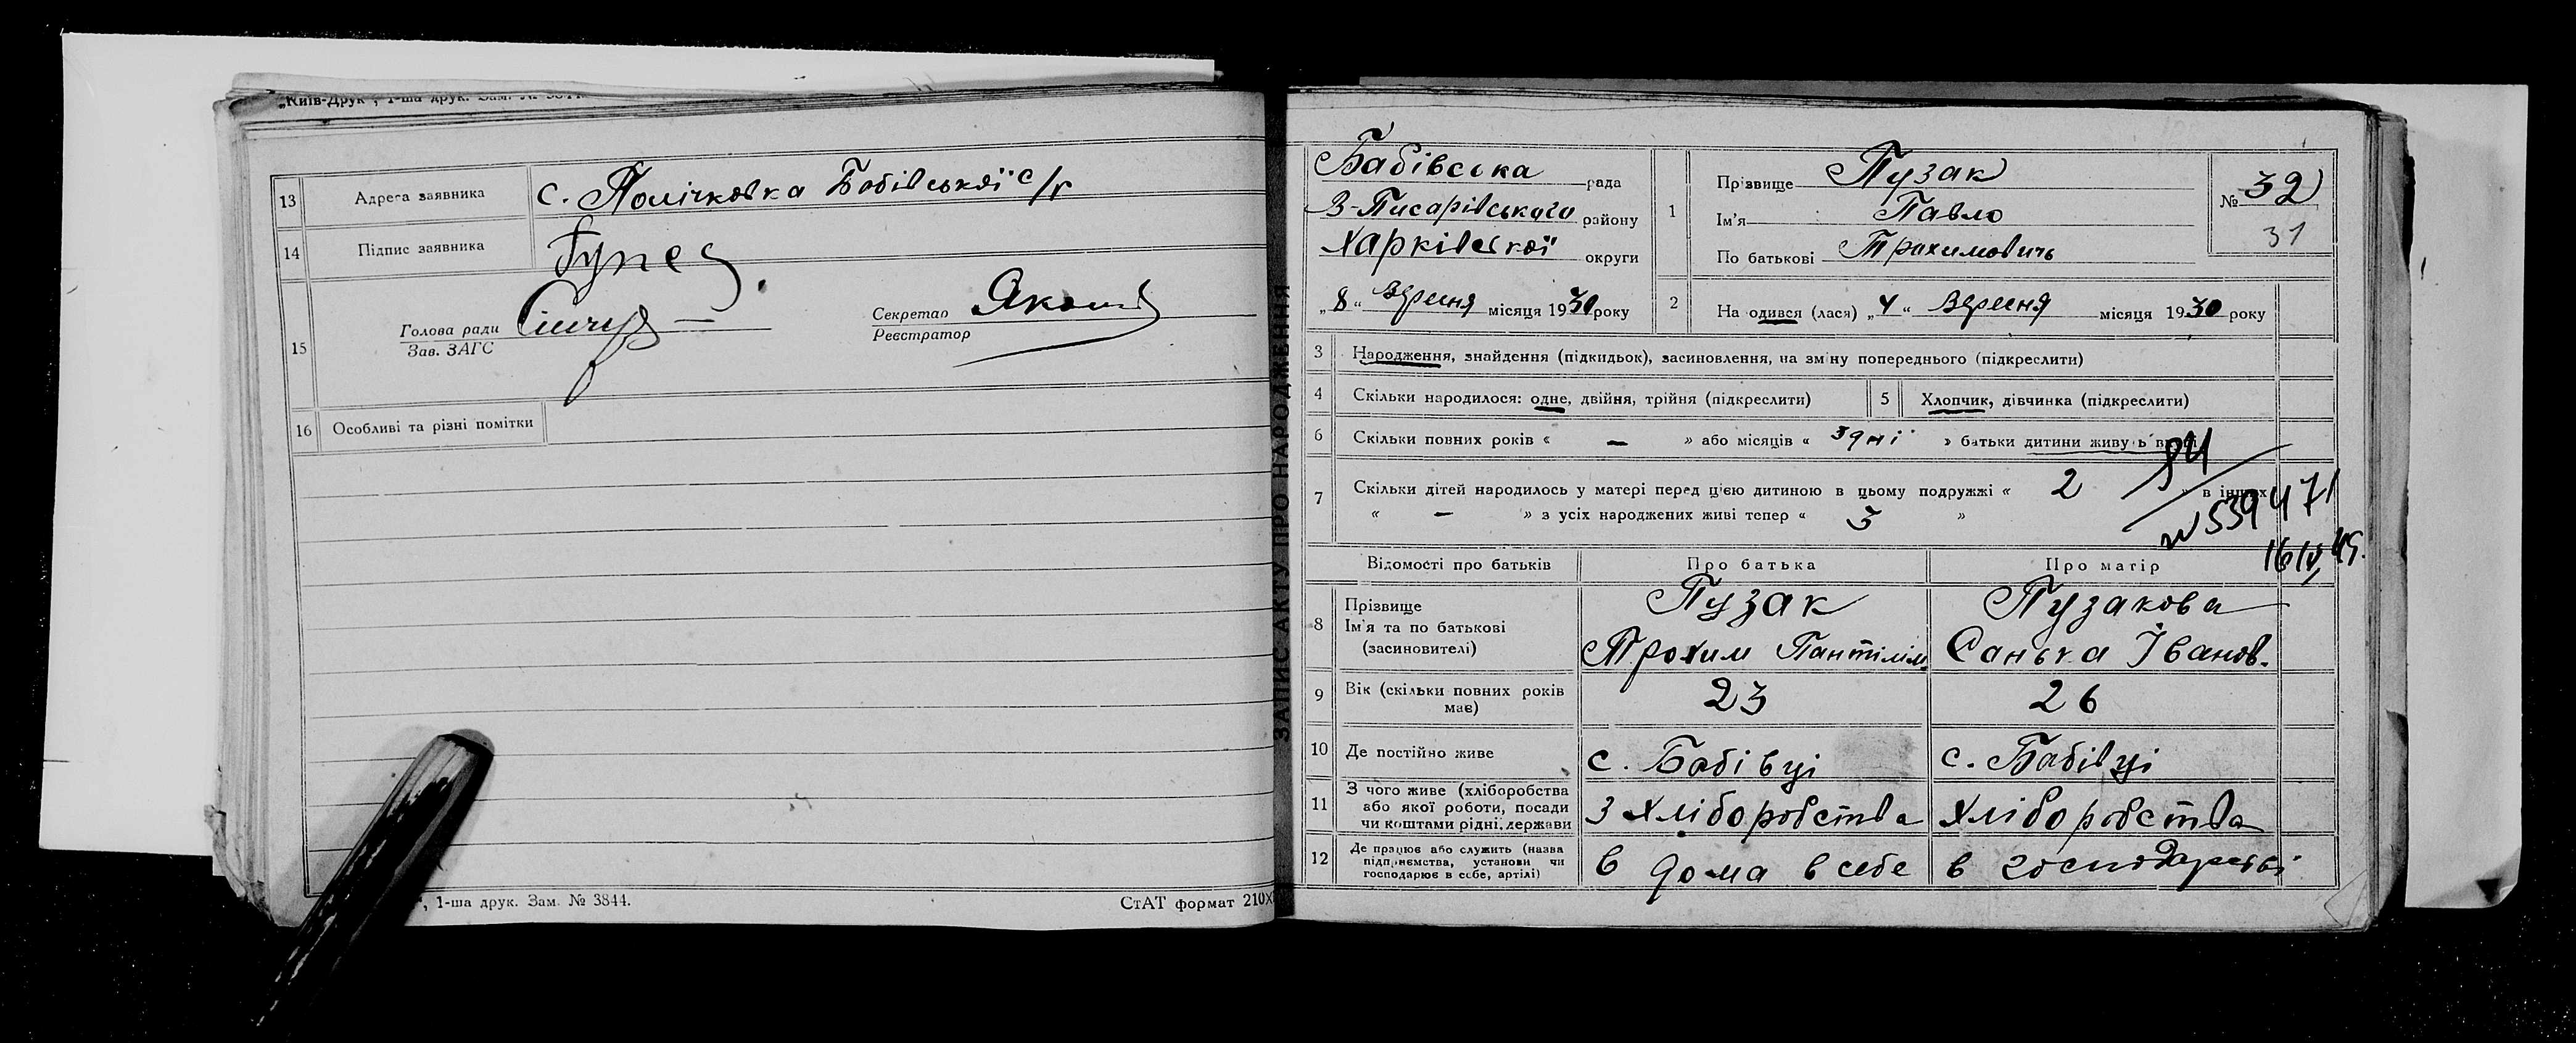 „Київ-Друк", 1-ша друк. Зам. №
13 Адреса заявника с. Полічковка Бабівської с/р
14 Підпис заявника
15 Голова ради
Зав. ЗАГС
Секретар
Реєстратор
16 Особливі та різні помітки
, 1-ша друк. Зам. № 3844.
СтАТ формат 210х
ЗАПИС АКТУ ПРО НАРОДЖЕННЯ
Бабівська рада
В-Писарівського району
Харківської округи
„8" Вересня місяця 1930 року
1 Прізвище Пузак
Ім'я Павло
По батькові Трохимовичь
№ 32
31
2 На одився (лася) „4" Вересня місяця 1930 року
3 Народження, знайдення (підкидьок), засиновлення, на зміну попереднього (підкреслити)
4 Скільки народилося: одне, двійня, трійня (підкреслити)
5 Хлопчик, дівчинка (підкреслити)
6 Скільки повних років « — » або місяців « 3 дні » батьки дитини живуть
7 Скільки дітей народилось у матері перед цією дитиною в цьому подружжі « 2 » в інших
« — » з усіх народжених живі тепер « 3 »
539471
16 IV 45.
Відомості про батьків Про батька Про матір
8 Прізвище
Ім'я та по батькові
(засиновителі)
Пузак
Трохим Пантілім.
Пузакова
Санька Іванов.
9 Вік (скільки повних років
має)
23
26
10 Де постійно живе с. Бабівці с. Бабівці
11 З чого живе (хліборобства
або якої роботи, посади
чи коштами рідні, держави
З Хліборобства
Хліборобства
12 Де працює або служить (назва
підприємства, установи чи
господарює в себе, артілі)
в дома в себе
в господарстві